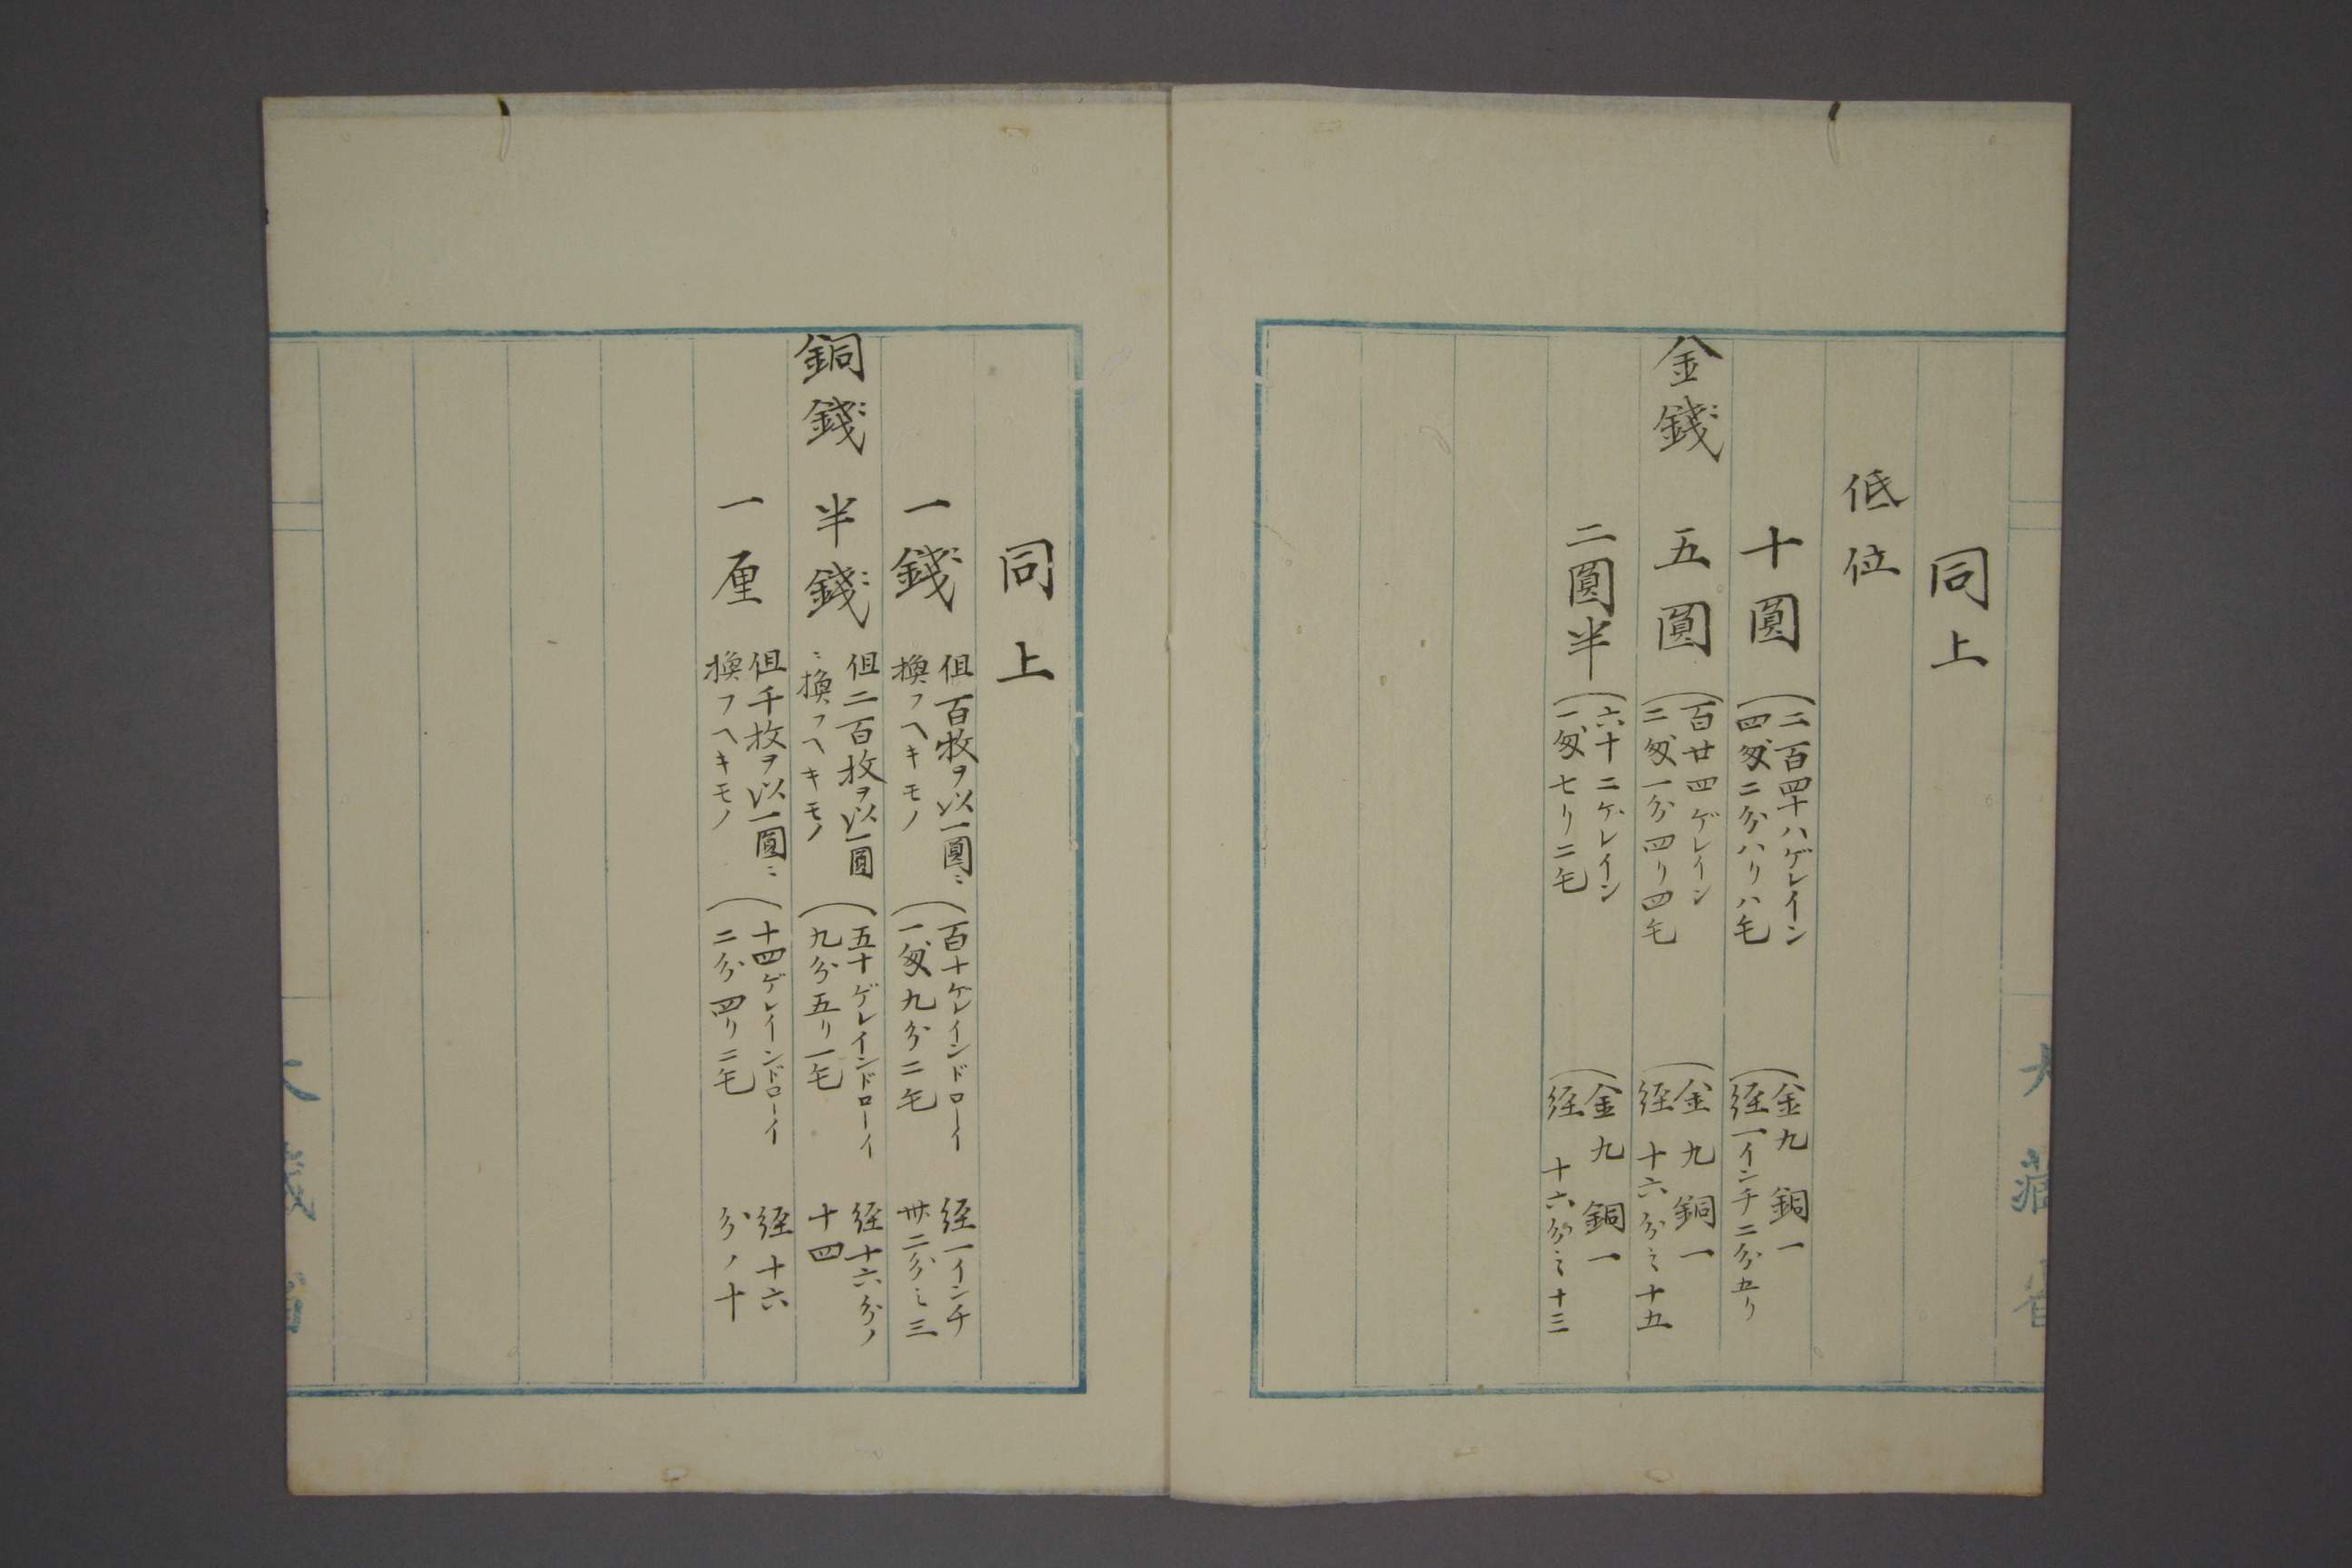 同上
低位
十圓（二百四十八ゲレイン 四匁二分八リ八毛 （金九 銅一 径一インチ二分五リ
金錢 五圓（百廿四ゲレイン 二匁一分四リ四毛 （金九 銅一 径 十六分ミ十五
二圓半（六十二ゲレイン 一匁七リ二毛 （金九 銅一 径 十六分ミ十三
同上
一錢 但百枚ヲ以一圓ニ換フヘキモノ （百十ゲレインドローイ 一匁九分二毛 径一インチ卅二分ミ三
銅錢 半錢 但二百枚ヲ以一圓ニ換フヘキモノ （五十ゲレインドローイ 九分五リ一毛 径十六分ノ十四
一厘 但千枚ヲ以一圓ニ換フヘキモノ （十四ゲレインドローイ 二分四リ二毛 径十六分ノ十